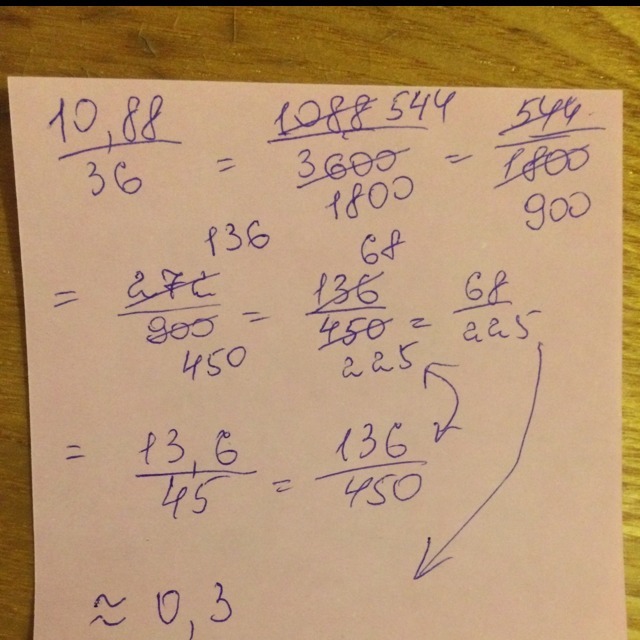 10,88/36 = 1088/3600 544/1800 = 544/1800 900
= 272/900 136/450 = 136/450 68/225 = 68/225
= 13,6/45 = 136/450
≈ 0,3